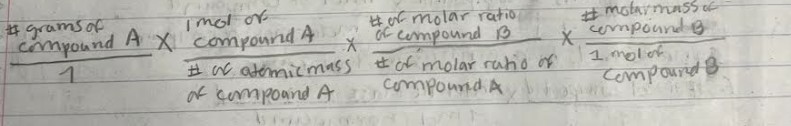 # grams of compound A / 1 X 1 mol of compound A / # of atomic mass of compound A x # of molar ratio of compound B / # of molar ratio of compound A x # molar mass of compound B / 1 mol of compound B